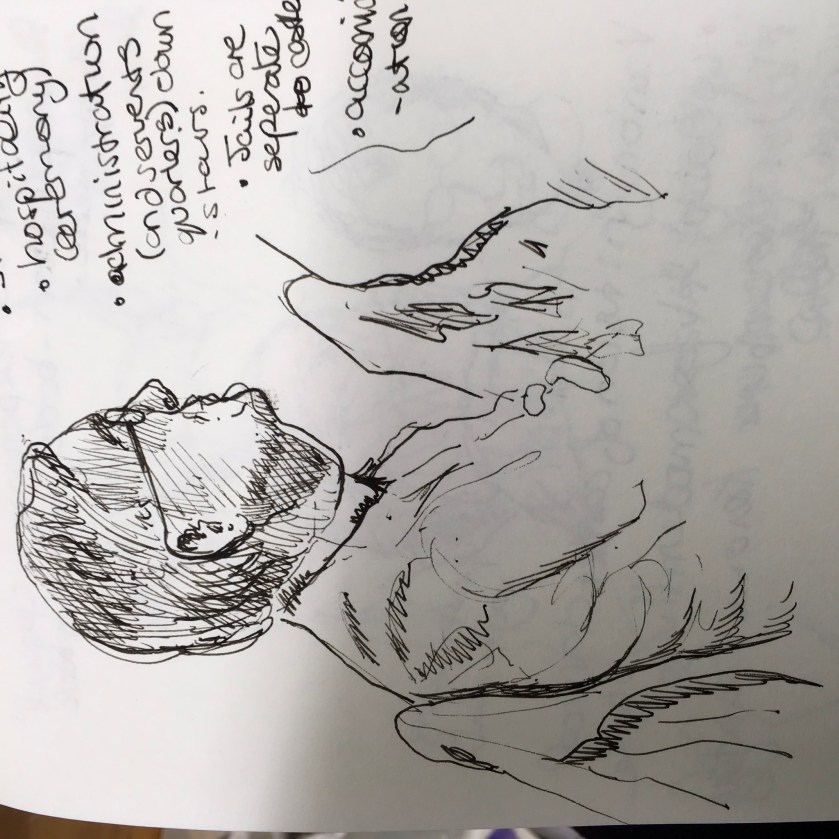 • hospitality
ceremony)
• administration
(and servents
quarters) down
-stairs.
• Jails are
seperate
to castle
• accomid
-ation